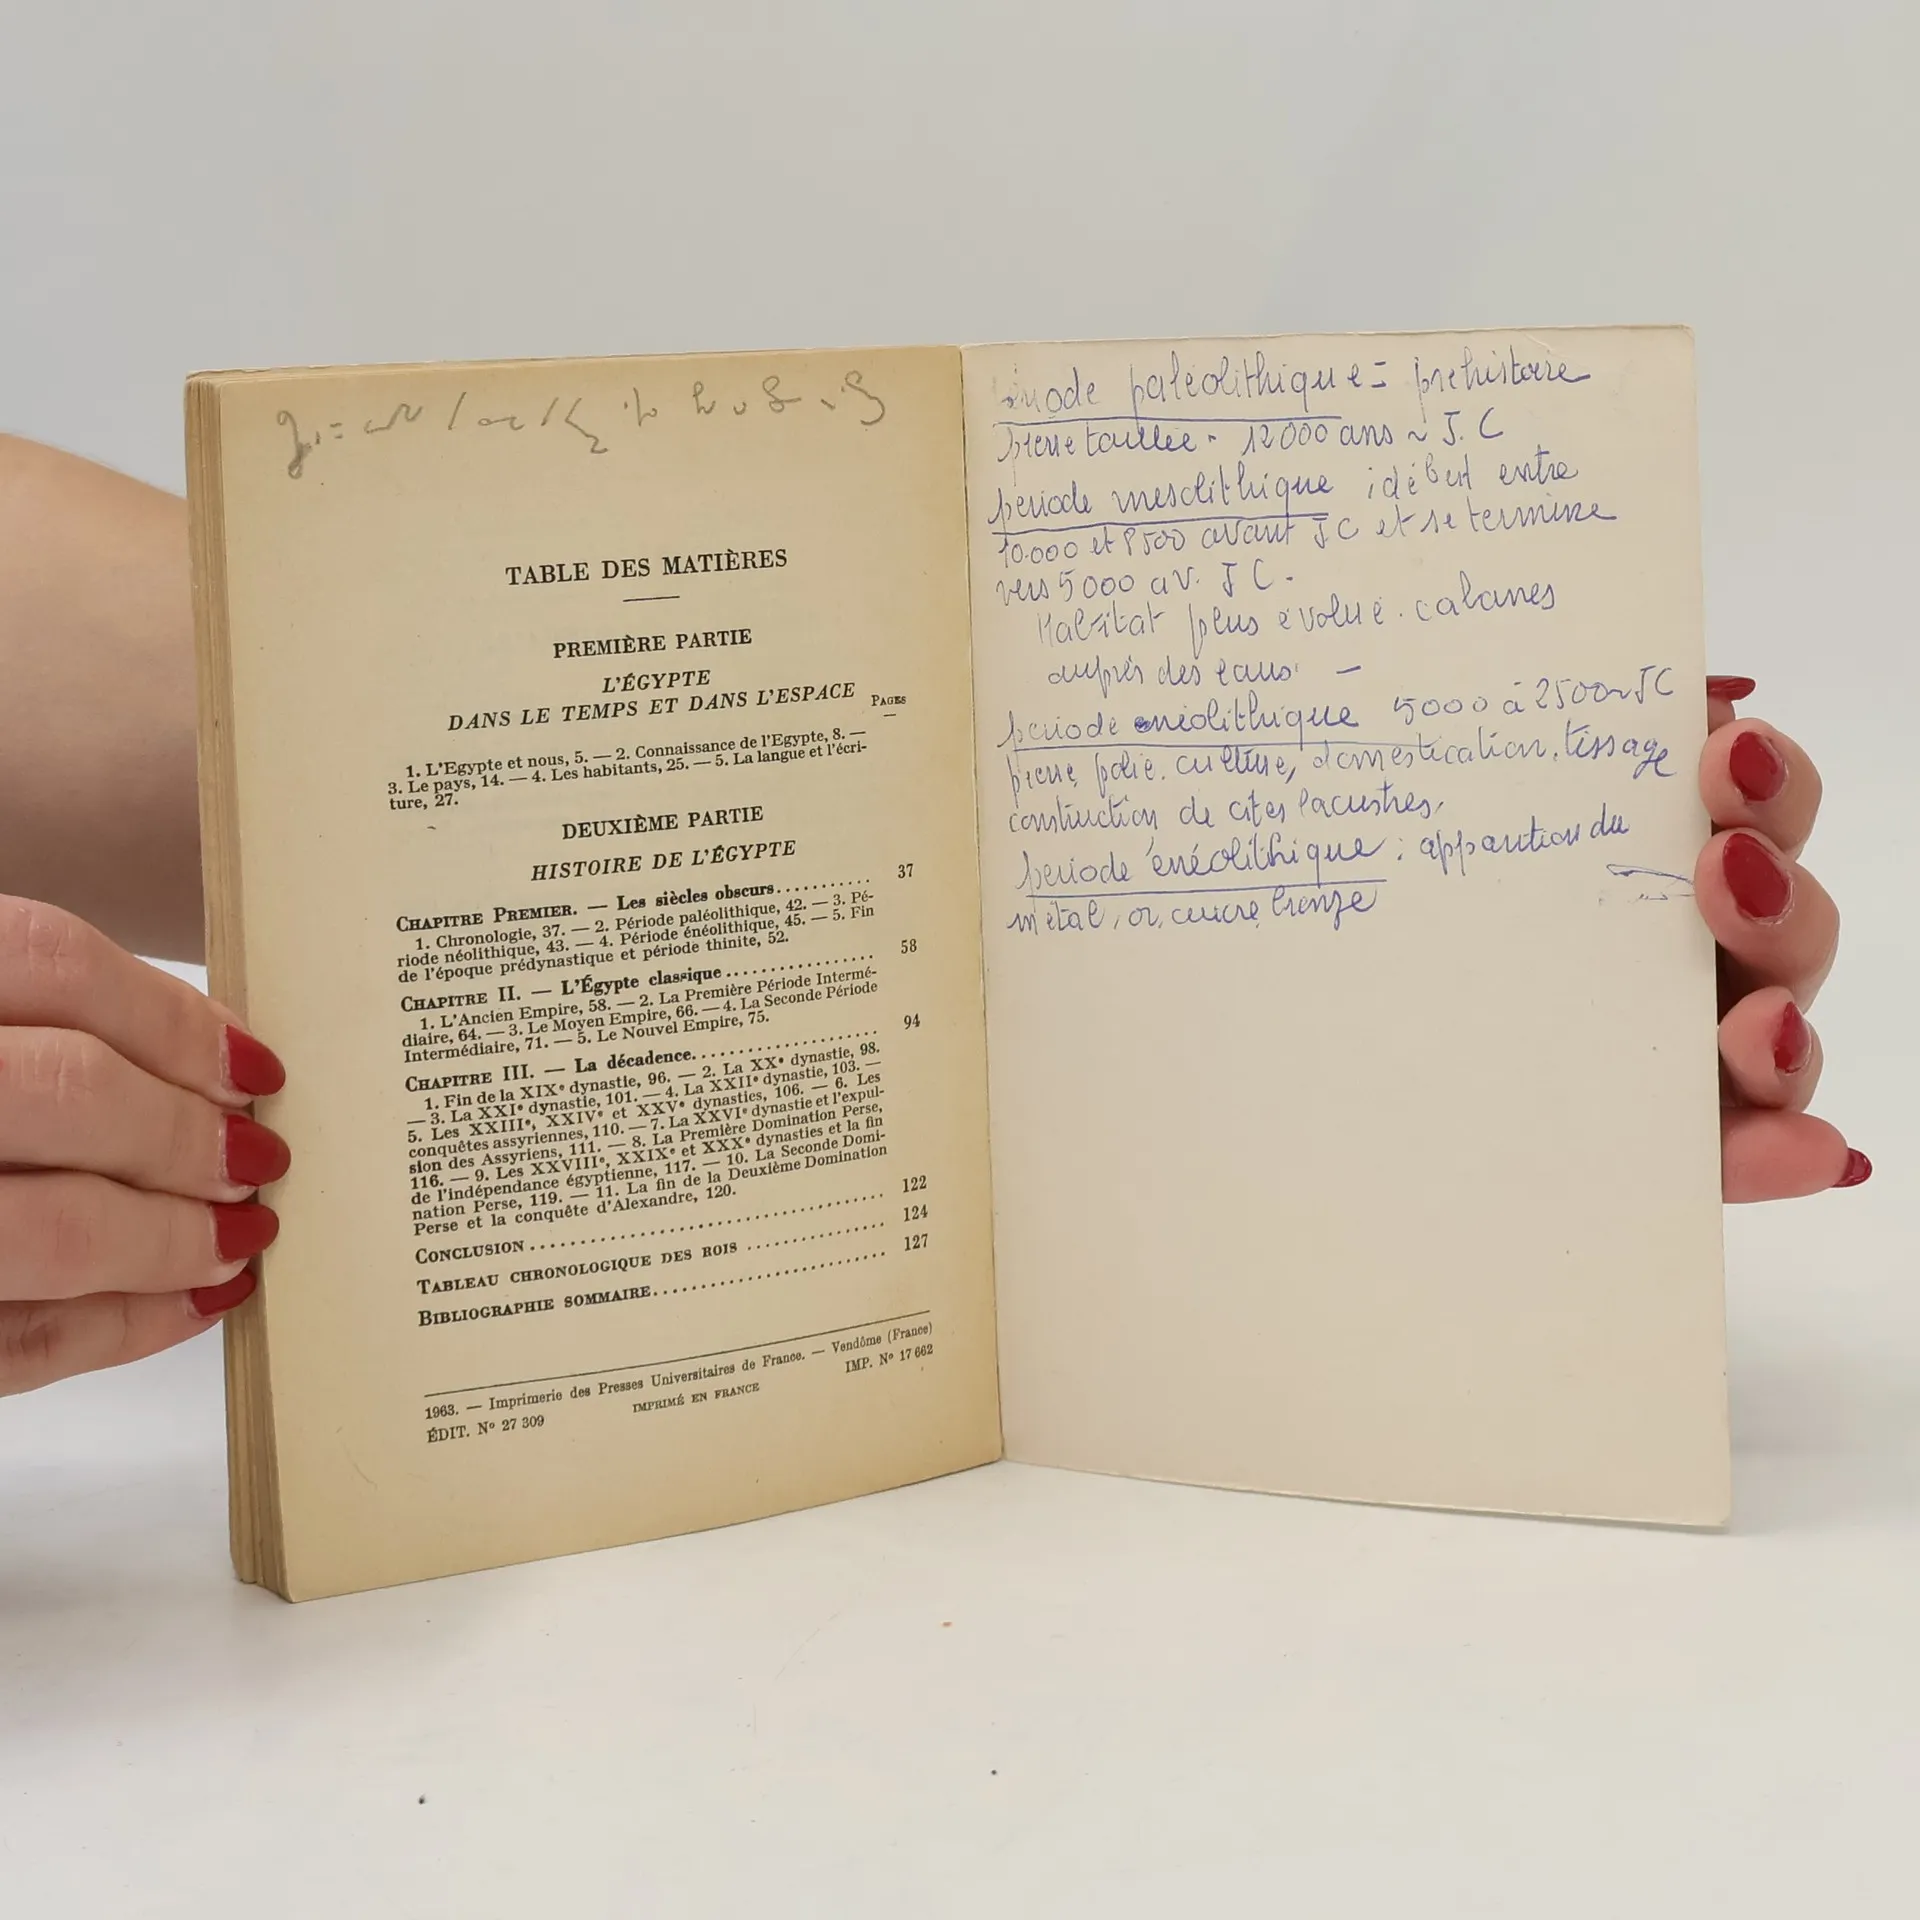 TABLE DES MATIÈRES
PREMIÈRE PARTIE
L'ÉGYPTE
DANS LE TEMPS ET DANS L'ESPACE
PAGES
1. L'Egypte et nous, 5. — 2. Connaissance de l'Egypte, 8. —
3. Le pays, 14. — 4. Les habitants, 25. — 5. La langue et l'écri-
ture, 27.
DEUXIÈME PARTIE
HISTOIRE DE L'ÉGYPTE
CHAPITRE PREMIER. — Les siècles obscurs........... 37
1. Chronologie, 37. — 2. Période paléolithique, 42. — 3. Pé-
riode néolithique, 43. — 4. Période énéolithique, 45. — 5. Fin
de l'époque prédynastique et période thinite, 52.
CHAPITRE II. — L'Égypte classique ................ 58
1. L'Ancien Empire, 58. — 2. La Première Période Intermé-
diaire, 64. — 3. Le Moyen Empire, 66. — 4. La Seconde Période
Intermédiaire, 71. — 5. Le Nouvel Empire, 75.
CHAPITRE III. — La décadence.................... 94
1. Fin de la XIXe dynastie, 96. — 2. La XXe dynastie, 98.
— 3. La XXIe dynastie, 101. — 4. La XXIIe dynastie, 103. —
5. Les XXIIIe, XXIVe et XXVe dynasties, 106. — 6. Les
conquêtes assyriennes, 110. — 7. La XXVIe dynastie et l'expul-
sion des Assyriens, 111. — 8. La Première Domination Perse,
116. — 9. Les XXVIIIe, XXIXe et XXXe dynasties et la fin
de l'indépendance égyptienne, 117. — 10. La Seconde Domi-
nation Perse, 119. — 11. La fin de la Deuxième Domination
Perse et la conquête d'Alexandre, 120.
CONCLUSION .................................... 122
TABLEAU CHRONOLOGIQUE DES ROIS .............. 124
BIBLIOGRAPHIE SOMMAIRE........................ 127
1963. — Imprimerie des Presses Universitaires de France. — Vendôme (France)
ÉDIT. No 27 309 IMPRIMÉ EN FRANCE IMP. No 17 662
période paléolithique = préhistoire
pierre taillée - 12000 ans ~ J. C
période mesolithique : débert entre
10.000 et 8500 avant J C et se termine
vers 5000 av. J C.
Habitat plus évolué. cabanes
auprès des eaux. —
periode néolithique 5000 à 2500 ~ J C
pierre polie. culture, domestication. tissage
construction de cités lacustres.
période énéolithique : apparition du
métal, or, cuivre, bronze